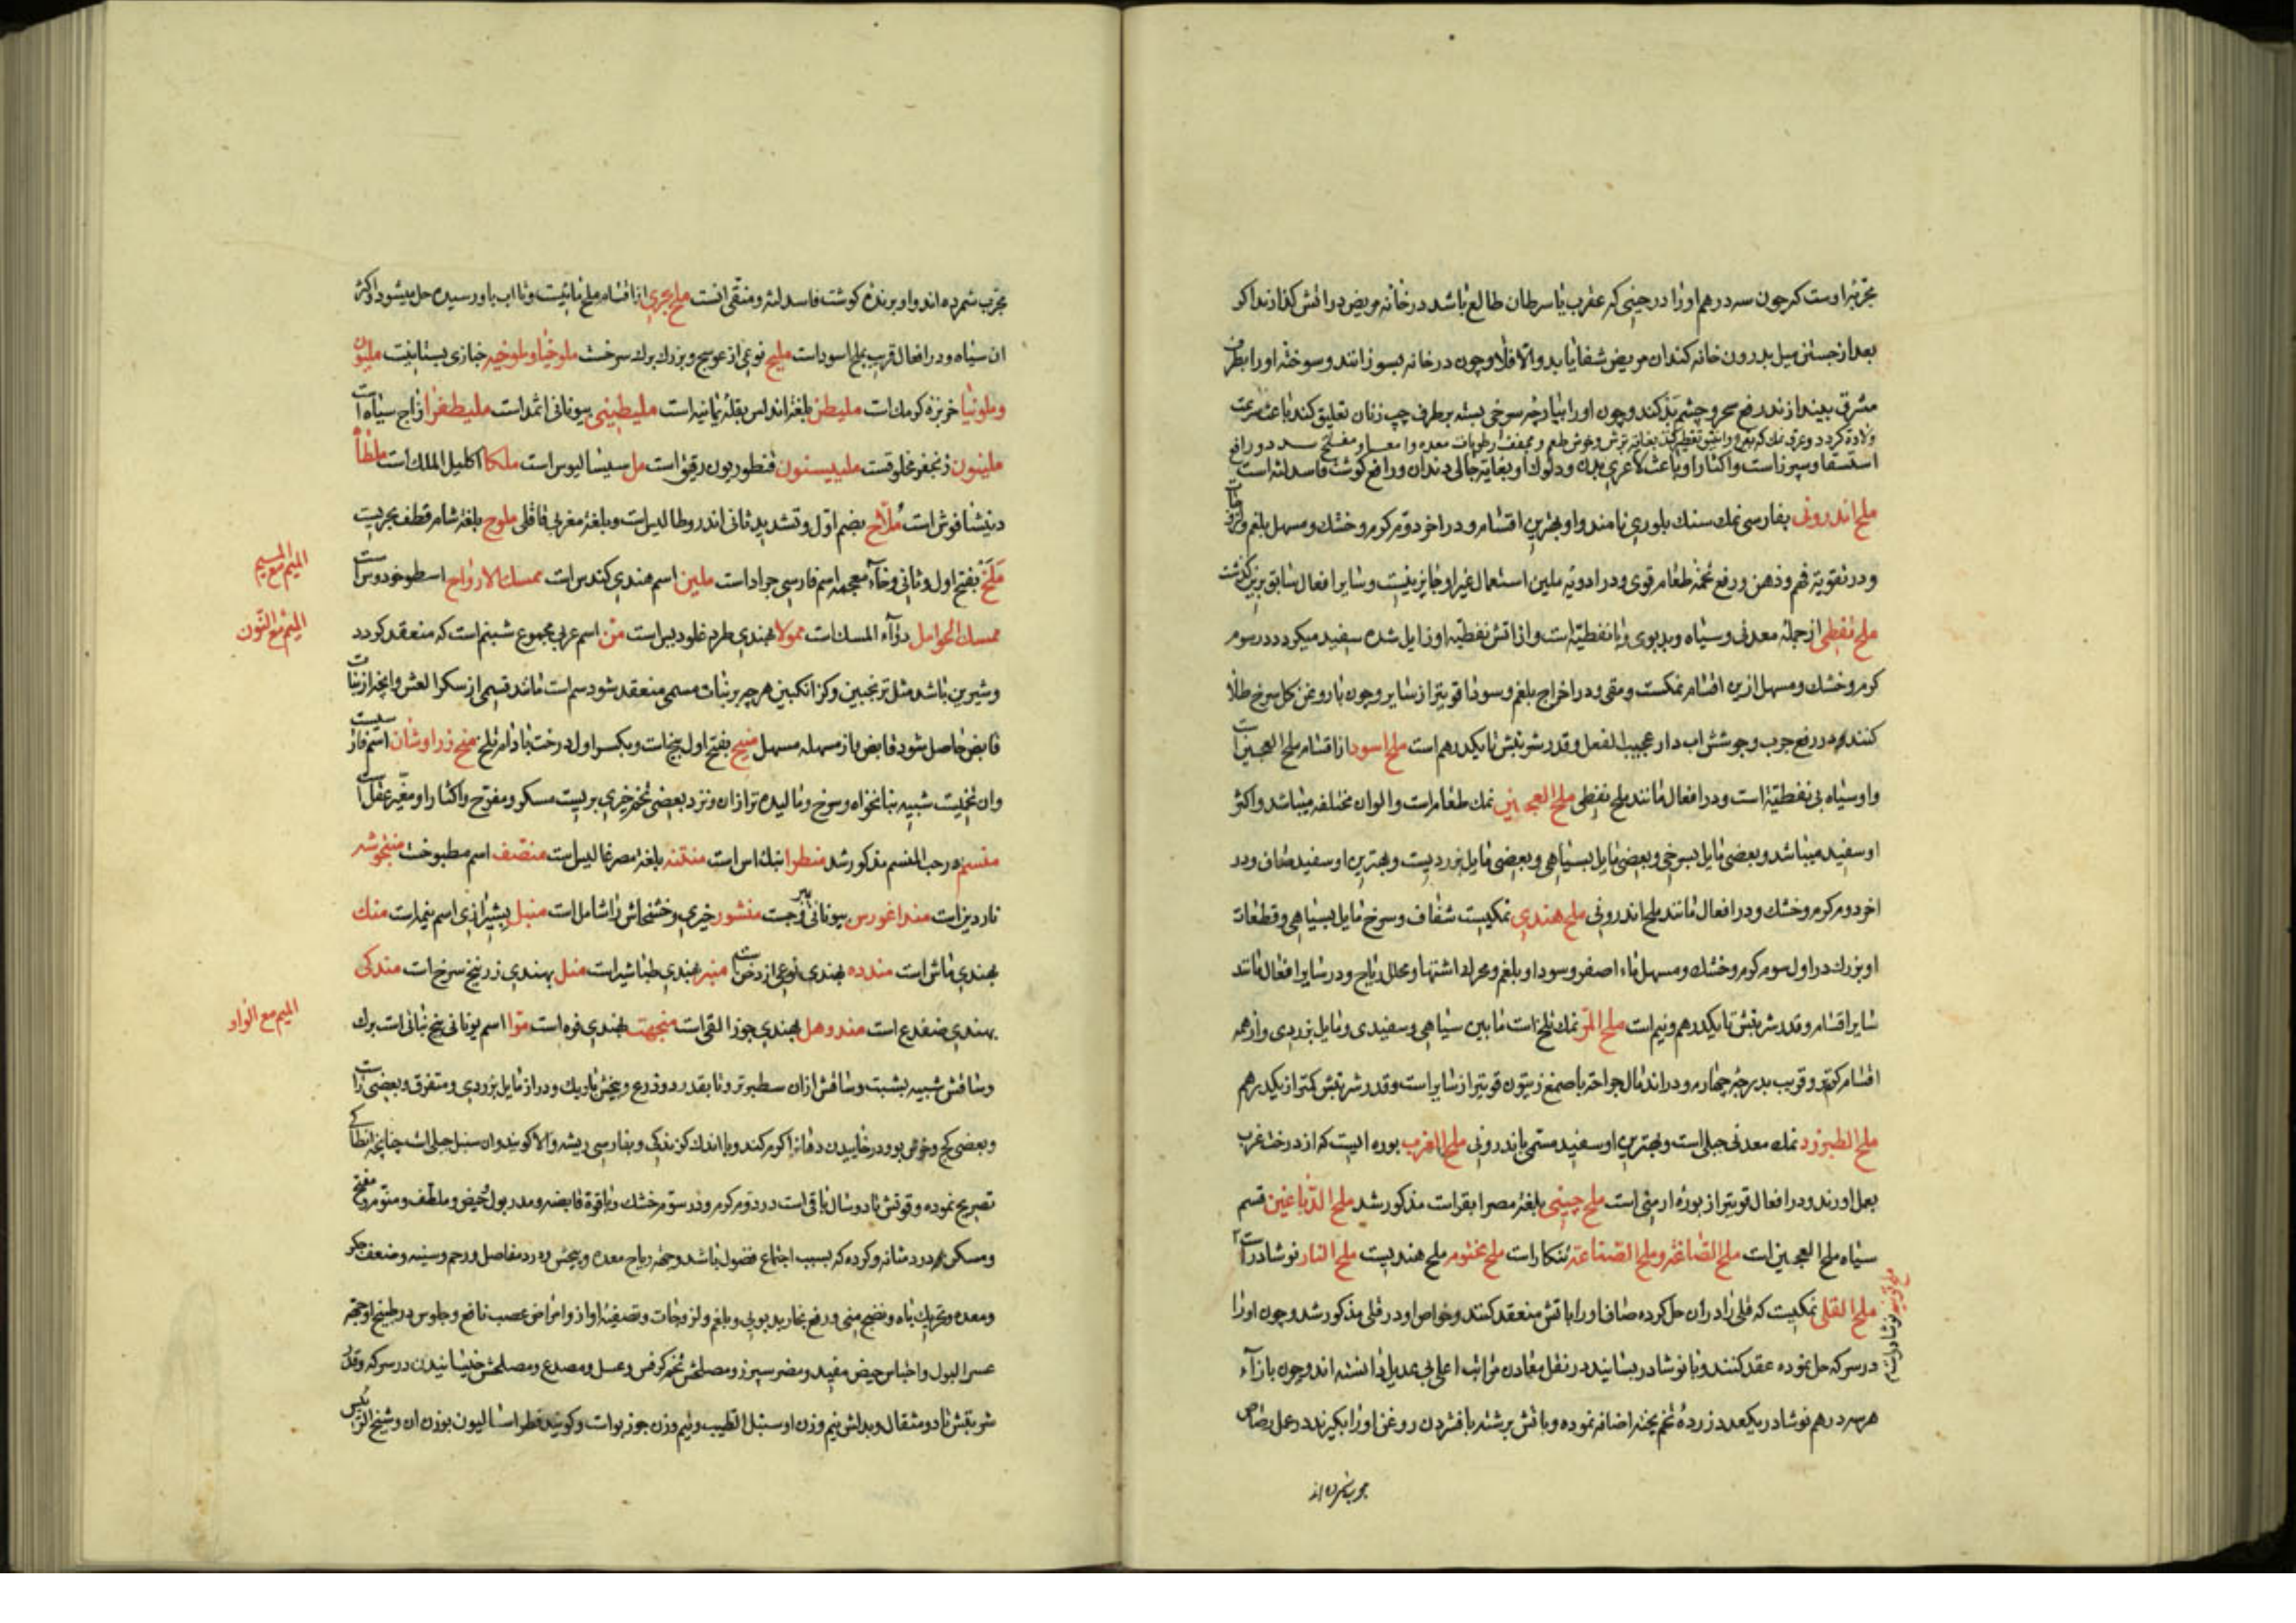 بعد از جستن میل بدرون خانه کند ان مریض شفا یابد والا فلا و چون در خانه بسوزانند و سوخته او را بطرف
مشرق بیندازند رفع سحر و چشم بد کند و چون او را بپارچه سرخی بسته بر طرف چپ زنان تعلیق کند باعث سرعت
استسقا و سپرز است و اکثار او باعث لاغری بدن و دلوک او بغایة جالی دندان و رافع کوشت فاسد لثه است
ملح اندرونی بفارسی نمک سنک بلوری نامند و او بهترین اقسام و در اخر دوم کرم و خشک و مسهل بلغم
و در تقویة فهم و ذهن و رفع تخمه طعام قوی و در ادویه ملین استعمال غیر او جایز نیست و سایر افعال سابق برین کذشت
ملح نفطی از جمله معدنی و سیاه و بدبوی و با نفطیة است و از اتش نفطیه او زایل شده سفید میکردد در سوم
کرم و خشک و مسهل ترین اقسام نمکست و مقی و در اخراج بلغم و سودا قویتر از سایر و چون با روغن کل سرخ طلا
کنند در رفع جرب و جوشش اب دار عجیب الفعل و قدر شربتش تا یکدرهم است ملح اسود از اقسام ملح العجین است
و او سیاه بی نفطیة است و در افعال مانند ملح نفطی ملح العجین نمک طعام است و الوان مختلفه میباشد و اکثر
او سفید میباشد و بعضی مایل بسرخی و بعضی مایل بسیاهی و بعضی مایل بزردیست و بهترین او سفید صاف و در
اخر دوم کرم و خشک و در افعال مانند ملح اندرونی ملح هندی نمکیست شفاف و سرخ مایل بسیاهی و قطعات
او بزرک در اول سوم کرم و خشک و مسهل ماء اصفر و سودا و بلغم و محرک اشتها و محلل ریاح و در سایر افعال مانند
سایر اقسام و قدر شربتش تا یکدرهم و نیم است ملح المر نمک تلخ است مابین سیاهی و سفیدی و مایل بزردی و از همه
اقسام کرمتر و قریب بدرجه چهارم و در اندمال جراحة با صمغ زیتون قویتر از سایر است و قدر شربتش کمتر از یکدرهم
ملح الطبرزد نمک معدنی جبلی است و بهترین او سفید مسمی باندرونی ملح الغرب بوره ایست که از درخت غرب
بعمل اورند و در افعال قویتر از بوره ارمنی است ملح چینی بلغة مصر ابقر است مذکور شد ملح الدباغین قسم
سیاه ملح العجین است ملح الصاغة و ملح الصناعة تنکار است ملح مختوم ملح هندیست ملح النار نوشادر است
ملح القلی نمکیست که قلی را در ان حل کرده صاف او را باتش منعقد کنند و خواص او در قلی مذکور شد و چون او را
در سرکه حل نموده عقد کنند و با نوشادر بسانید در نقل معادن مراتب اعلی بی عدیل دانسته اند و چون با زاء
هر سه درهم نوشادر یکعدد زرده تخم پخته اضافه نموده و باتش برشته با فشردن روغن او را بکیرند در عمل رصاص
مجرب شمرده اند
مجرب شمرده اند و او برنده کوشت فاسد لثه و منقی انست ملح بحری از اقسام ملح مائیست و تا اب باو رسیده حل میشود و اکثر
ان سیاه و در افعال قریب بملح اسود است ملیح نوعی از عوسج و بزرک برک سرخست ملوخیا و ملوخیه خبازی بستانیست ملیون
و ملونیا خربزه کرمک است ملیطن بلغة اندلس بقله یمانیه است ملیطینی بیونانی اثمد است ملیطغرا زاج سیاه است
ملینون زنجفر مخلوقست ملیبیسنون قنطوریون رقیق است مل سیسالیوس است ملکا اکلیل الملک است ملطا
بضم اول و تشدید ثانی اندروطالیس است و بلغة مغربی قاقلی ملوح بلغة شام قطف بحریست
ملخ بفتح اول و ثانی و خاء معجمه اسم فارسی جراد است ملین اسم هندی کندس است ممسک الارواح اسطوخودوس است
المیم مع المیم
ممسک الحوامل دواء المسک است ممولا بهندی طرم غلودیس است من اسم عربی مجموع شبنم است که منعقد کردد
المیم مع النون
و شیرین باشد مثل ترنجبین و کزانکبین هر چه بر نبات مسمی منعقد شود
قابض حاصل شود قابض و از مسهله مسهل منج بفتح اول بیخ است و بکسر اول درخت بادام تلخ
و ان تخمیست شبیه بنانخواه و سرخ و بالیده تر از ان و نزد بعضی تخم خیری بریست مسکر و مفرح و اکثار او مغیر عقل است
منسم در حب المنسم مذکور شد منطرا نبک اس است منتنه بلغة مصر غالیس است منصف اسم مطبوخست منبخوشه
ناردین است منداغورس بیونانی یبروجست منشور خیری و خشخاش را شامل است منبل بشیرازی اسم ینمه است منک
بهندی ماش است مندده بهندی نوعی از دخن است منبر بهندی طباشیر است منسل بهندی زرنیخ سرخ است مندکی
بهندی ضفدع است مندوهل بهندی جوز القی است منجهت بهندی فوه است موا اسم یونانی بیخ نباتی است برک
المیم مع الواو
و ساقش شبیه بشبت و ساقش از ان سطبرتر و تا بقدر دو ذرع و بیخش باریک و دراز مایل بزردی و متفرق و بعضی راست
و بعضی کج و خوش بو و در خاییدن دهان را کرم کند و با اندک کزندکی و بفارسی ریشه والا کویند و ان سنبل جبلی است چنانچه انطاکی
تصریح نموده و قوتش تا دو سال باقی است در دوم کرم و در سوم خشک و با قوة قابضه و مدر بول و حیض و ملطف و منوم و مفتح
و مسکن درد مثانه و کرده که بسبب اجتماع فضول باشد و جهة ریاح معده و پیچش و درد مفاصل و رحم و سینه و ضعف جکر
و معده و تحریک باه و نضج منی و رفع بخار بدبویی و بلغم و لزوجات و تصفیة اواز و امراض عصب نافع و جلوس در طبیخ او جهة
عسر البول و احتباس حیض مفید و مضر سپرز و مصلحش تخم کرفس و عسل و مصدع و مصلحش خیسانیدن در سرکه و قدر
شربتش تا دو مثقال و بدلش نیم وزن او سنبل الطیب و نیم وزن جوزبوا است و کویند فطراسالیون بوزن ان و شیخ الرئیس